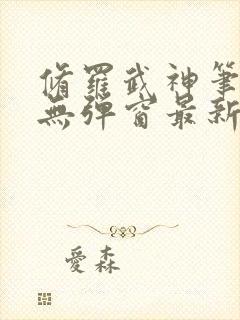 脩羅武神筆
無彈窗最新
愛森